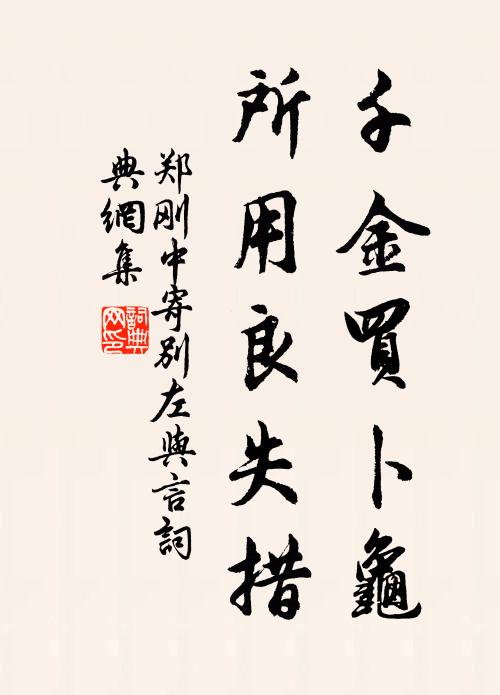 千金買卜龜
所用良失措
郑刚中寄别左與言詞
典網集
詞典网印